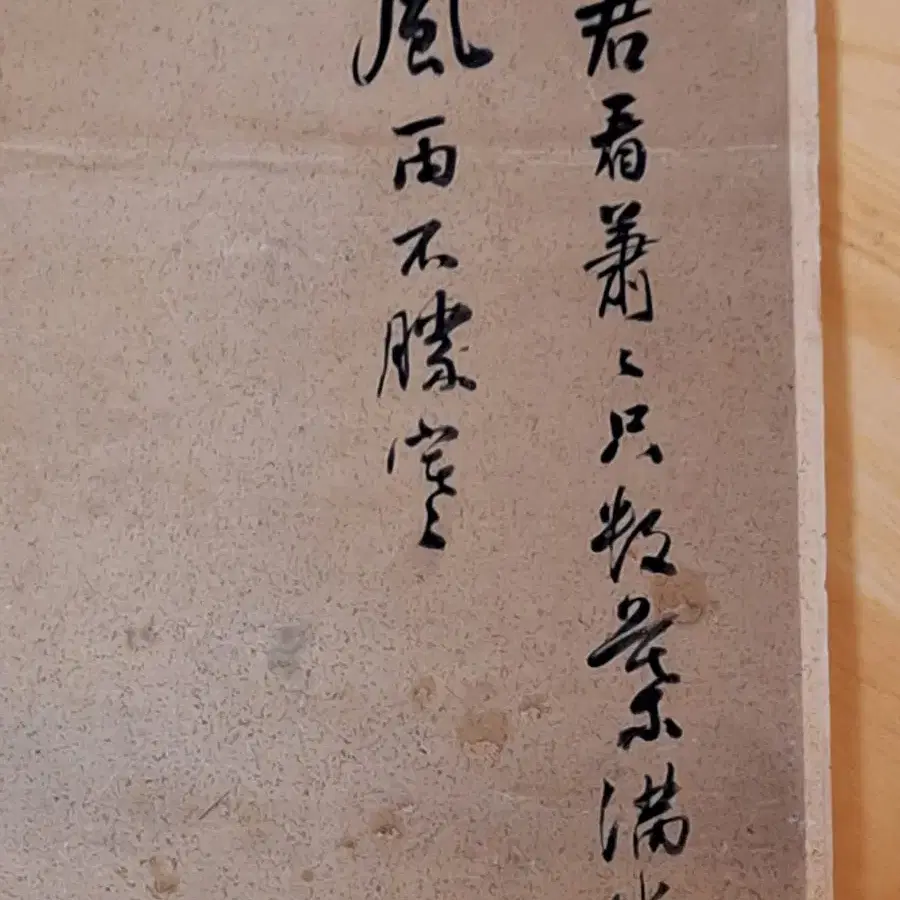 君看蕭〻只數葉滿
風雨不勝寒